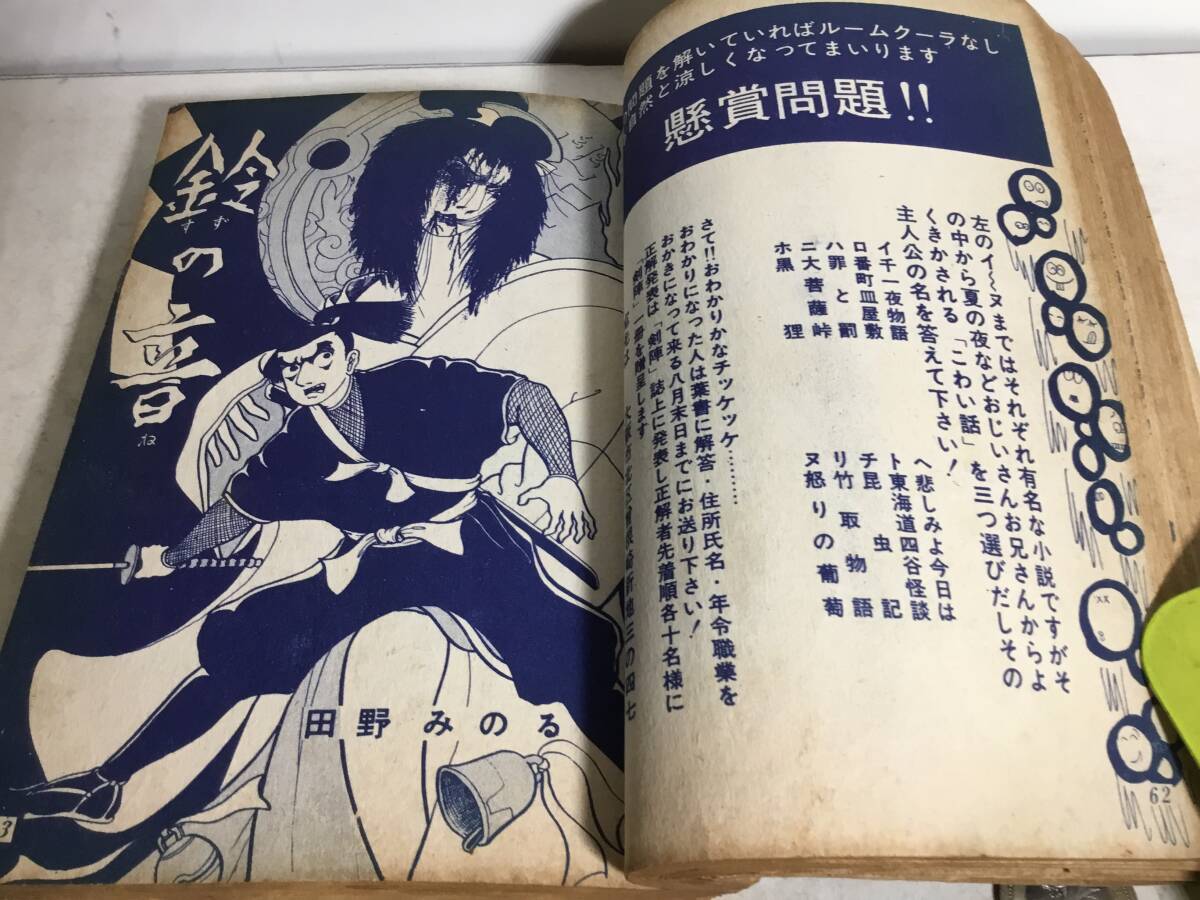 問題を解いていればルームクーラなし
自然と涼しくなってまいります
懸賞問題!!
左のイ〜ヌまではそれぞれ有名な小説ですがそ
の中から夏の夜などおじいさんお兄さんからよ
くきかされる「こわい話」を三つ選びだしその
主人公の名を答えて下さい!
イ千一夜物語
ロ番町皿屋敷
ハ罪と罰
ニ大菩薩峠
ホ黒狸
ヘ悲しみよ今日は
ト東海道四谷怪談
チ昆虫記
リ竹取物語
ヌ怒りの葡萄
さて!!おわかりかなチッケッケ………
おわかりになった人は葉書に解答・住所氏名・年令職業を
おかきになって来る八月末日までにお送り下さい!
正解発表は「剣陣」誌上に発表し正解者先着順各十名様に
「剣陣」一冊を贈呈します
曽根崎新地三の四七
62
鈴の音
すず
ね
田野みのる
3